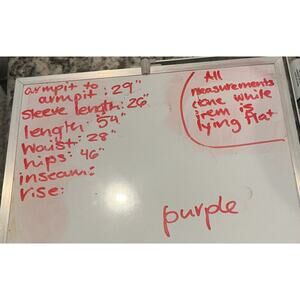 armpit to
armpit: 29"
sleeve length: 26"
length: 54"
waist: 28"
hips: 46"
inseam:
rise:
All
measurements
done while
item is
lying flat
purple